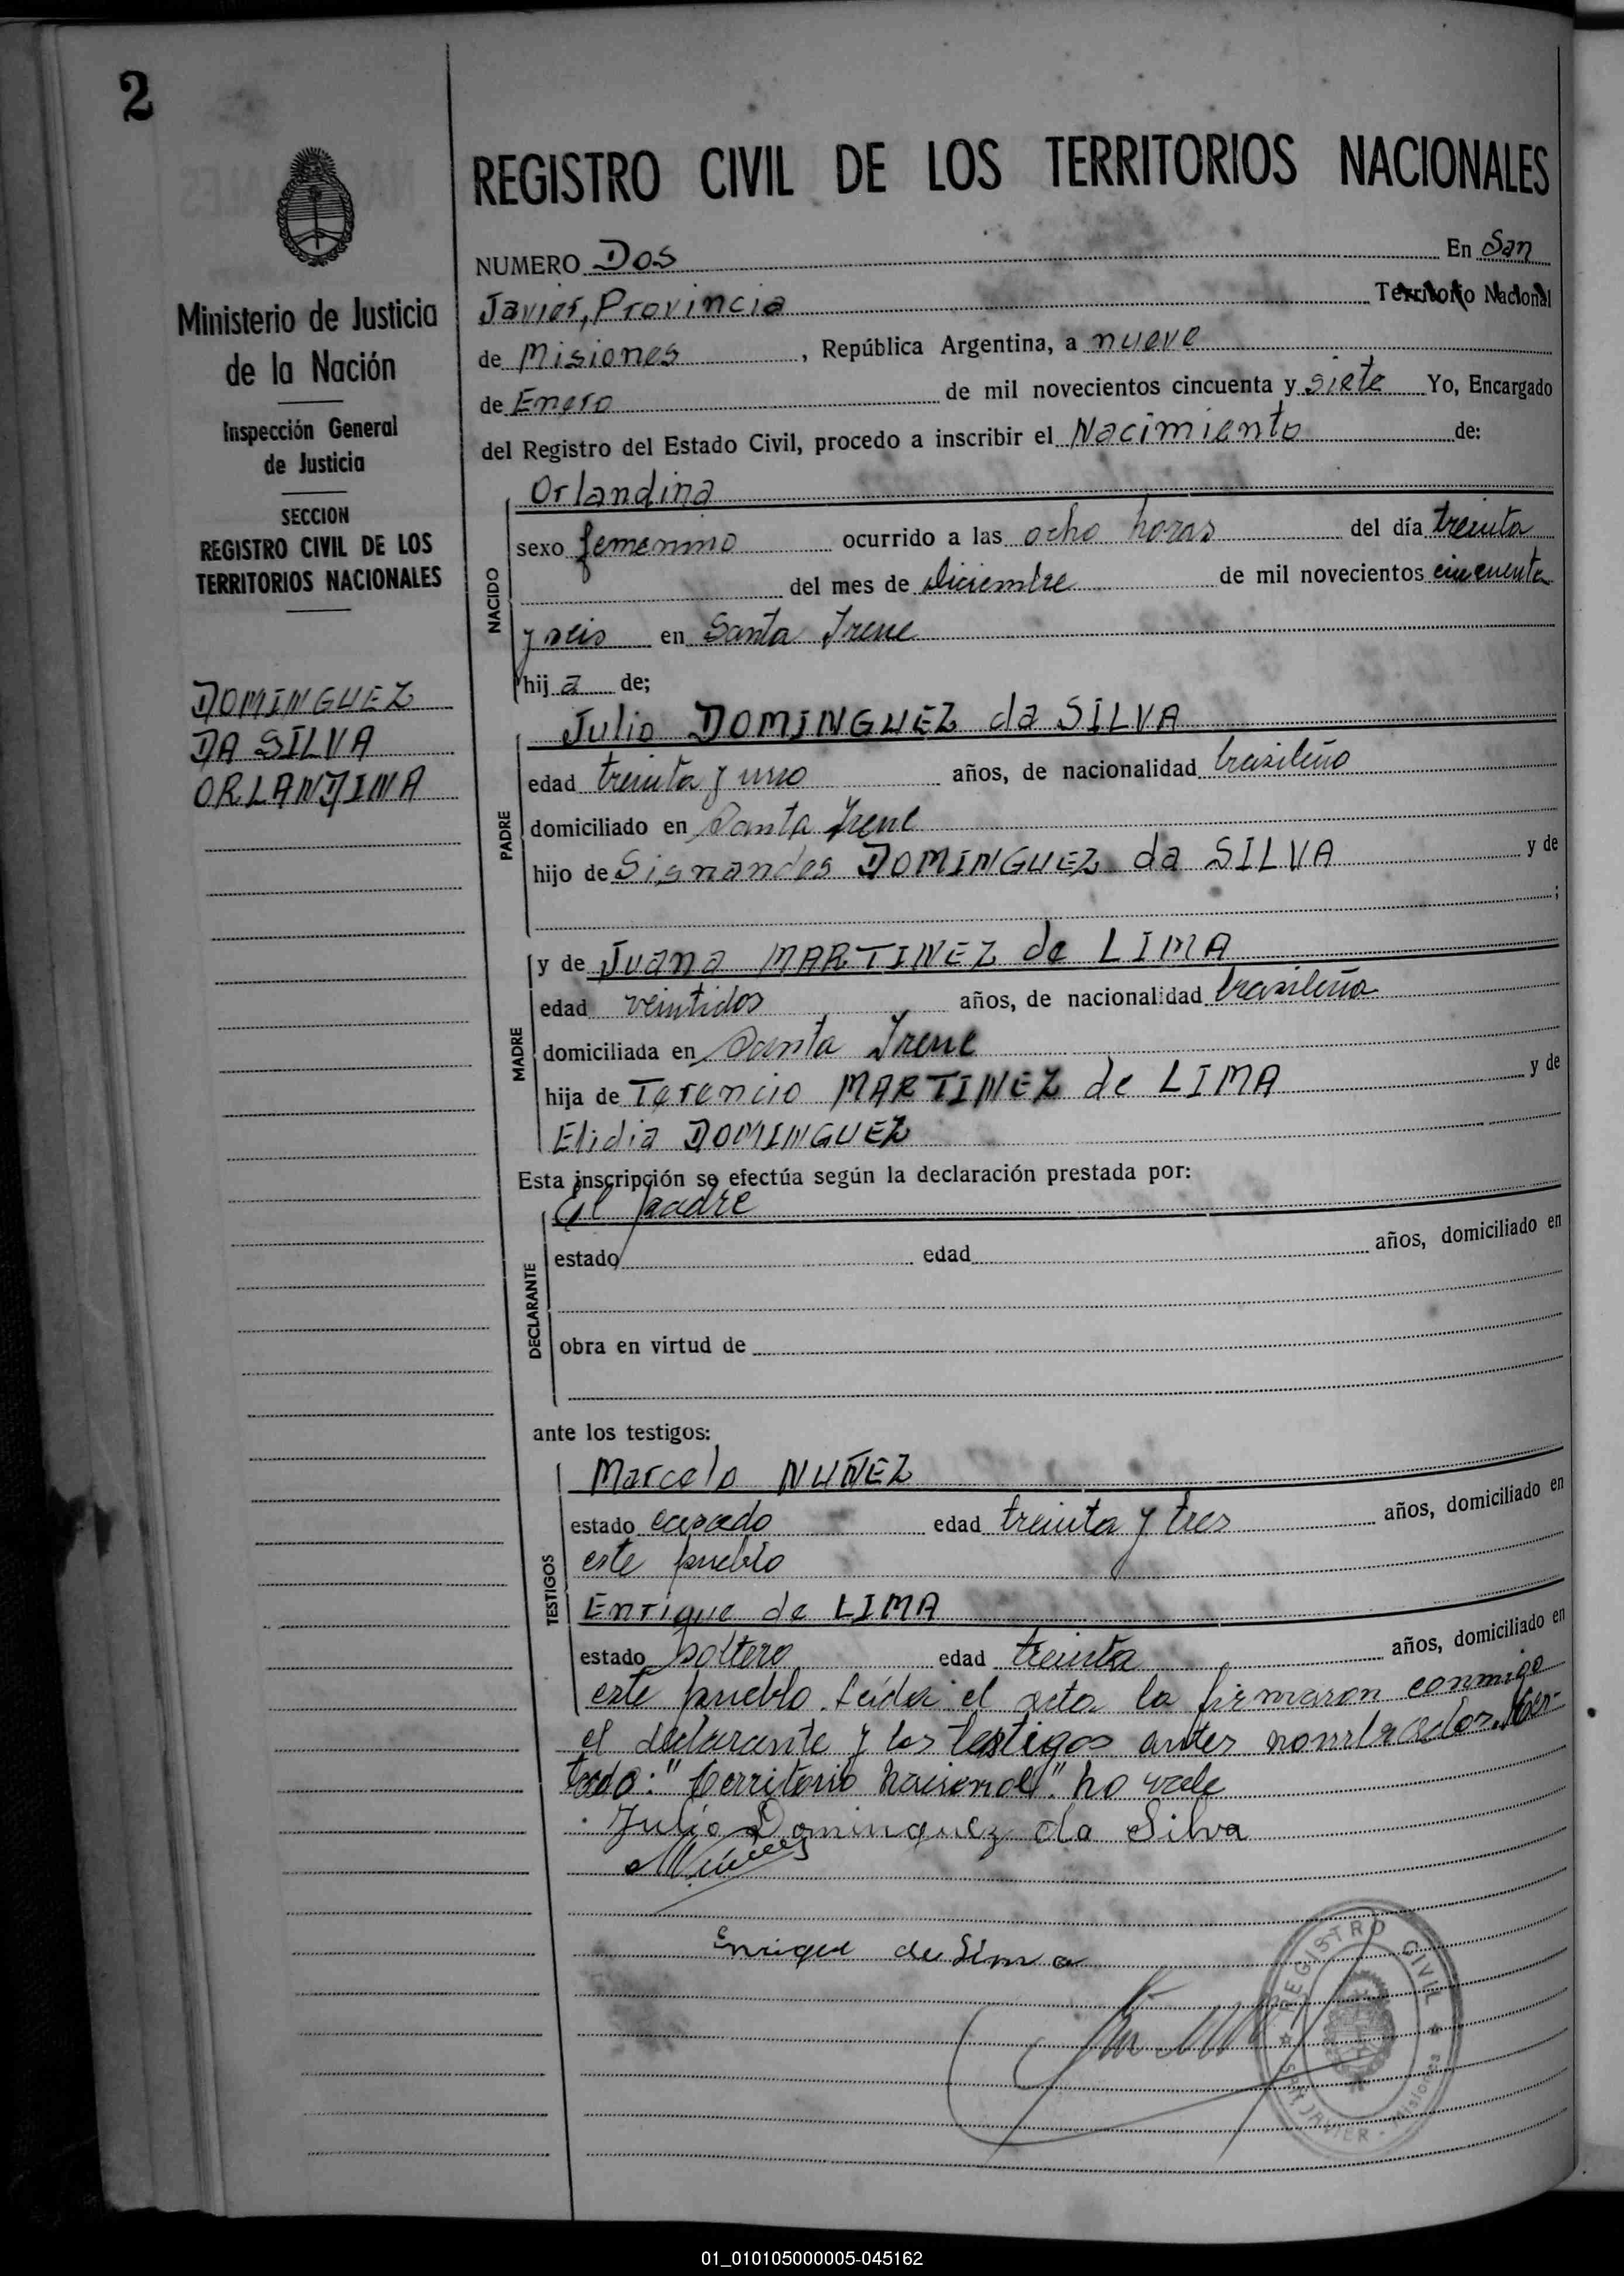 2
REGISTRO CIVIL DE LOS TERRITORIOS NACIONALES
Ministerio de Justicia
de la Nación
Inspección General
de Justicia
SECCION
REGISTRO CIVIL DE LOS
TERRITORIOS NACIONALES
DOMINGUEZ
DA SILVA
ORLANDINA
NUMERO Dos En San
Javier, Provincia Territorio Nacional
de Misiones, República Argentina, a nueve
de Enero de mil novecientos cincuenta y siete Yo, Encargado
del Registro del Estado Civil, procedo a inscribir el Nacimiento de:
NACIDO
Orlandina
sexo femenino ocurrido a las ocho horas del día treinta
del mes de Diciembre de mil novecientos cincuenta
y seis en Santa Irene
hija de;
PADRE
Julio DOMINGUEZ da SILVA
edad treinta y uno años, de nacionalidad brasileño
domiciliado en Santa Irene
hijo de Sisnandes DOMINGUEZ da SILVA y de
;
MADRE
y de Juana MARTINEZ de LIMA
edad veintidos años, de nacionalidad brasileña
domiciliada en Santa Irene
hija de Terencio MARTINEZ de LIMA y de
Elidia DOMINGUEZ
Esta inscripción se efectúa según la declaración prestada por:
DECLARANTE
El padre
estado edad años, domiciliado en
obra en virtud de
ante los testigos:
TESTIGOS
Marcelo NUÑEZ
estado casado edad treinta y tres años, domiciliado en
este pueblo
Enrique de LIMA
estado soltero edad treinta años, domiciliado en
este pueblo. Leída el acta la firmaron conmigo
el declarante y los testigos antes nombrados. Tes-
tado: "Territorio Nacional" no vale
Julio Dominguez da Silva
Enrique de Lima
REGISTRO CIVIL
SAN JAVIER - Misiones
01_010105000005-045162